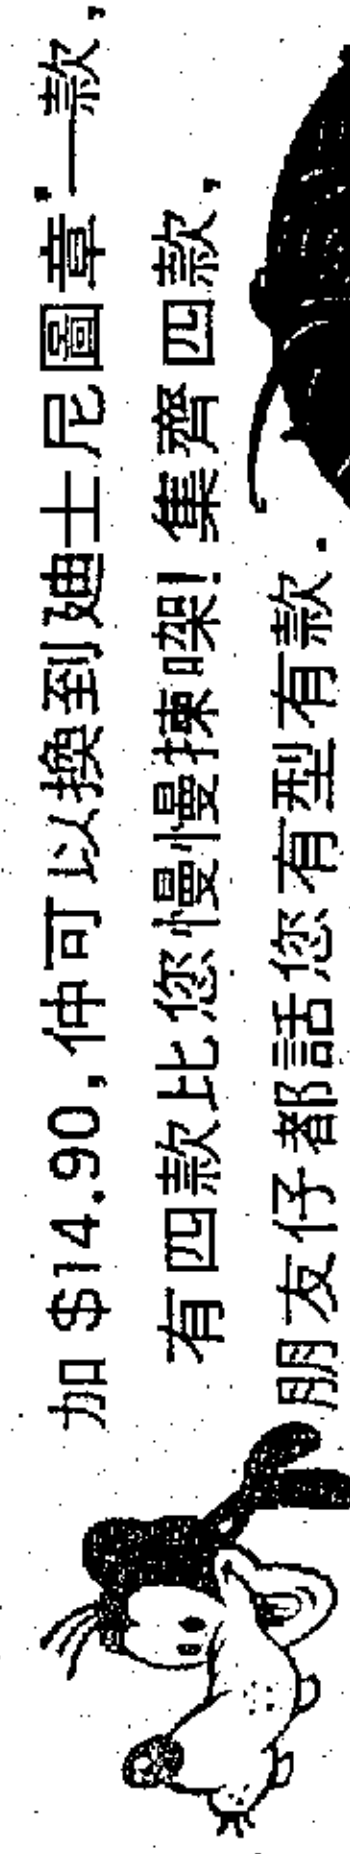 加$14.90,仲可以換到廸士尼圖章*一款,
有四款比您慢慢揀㗎!集齊四款,
朋友仔都話您有型有款.